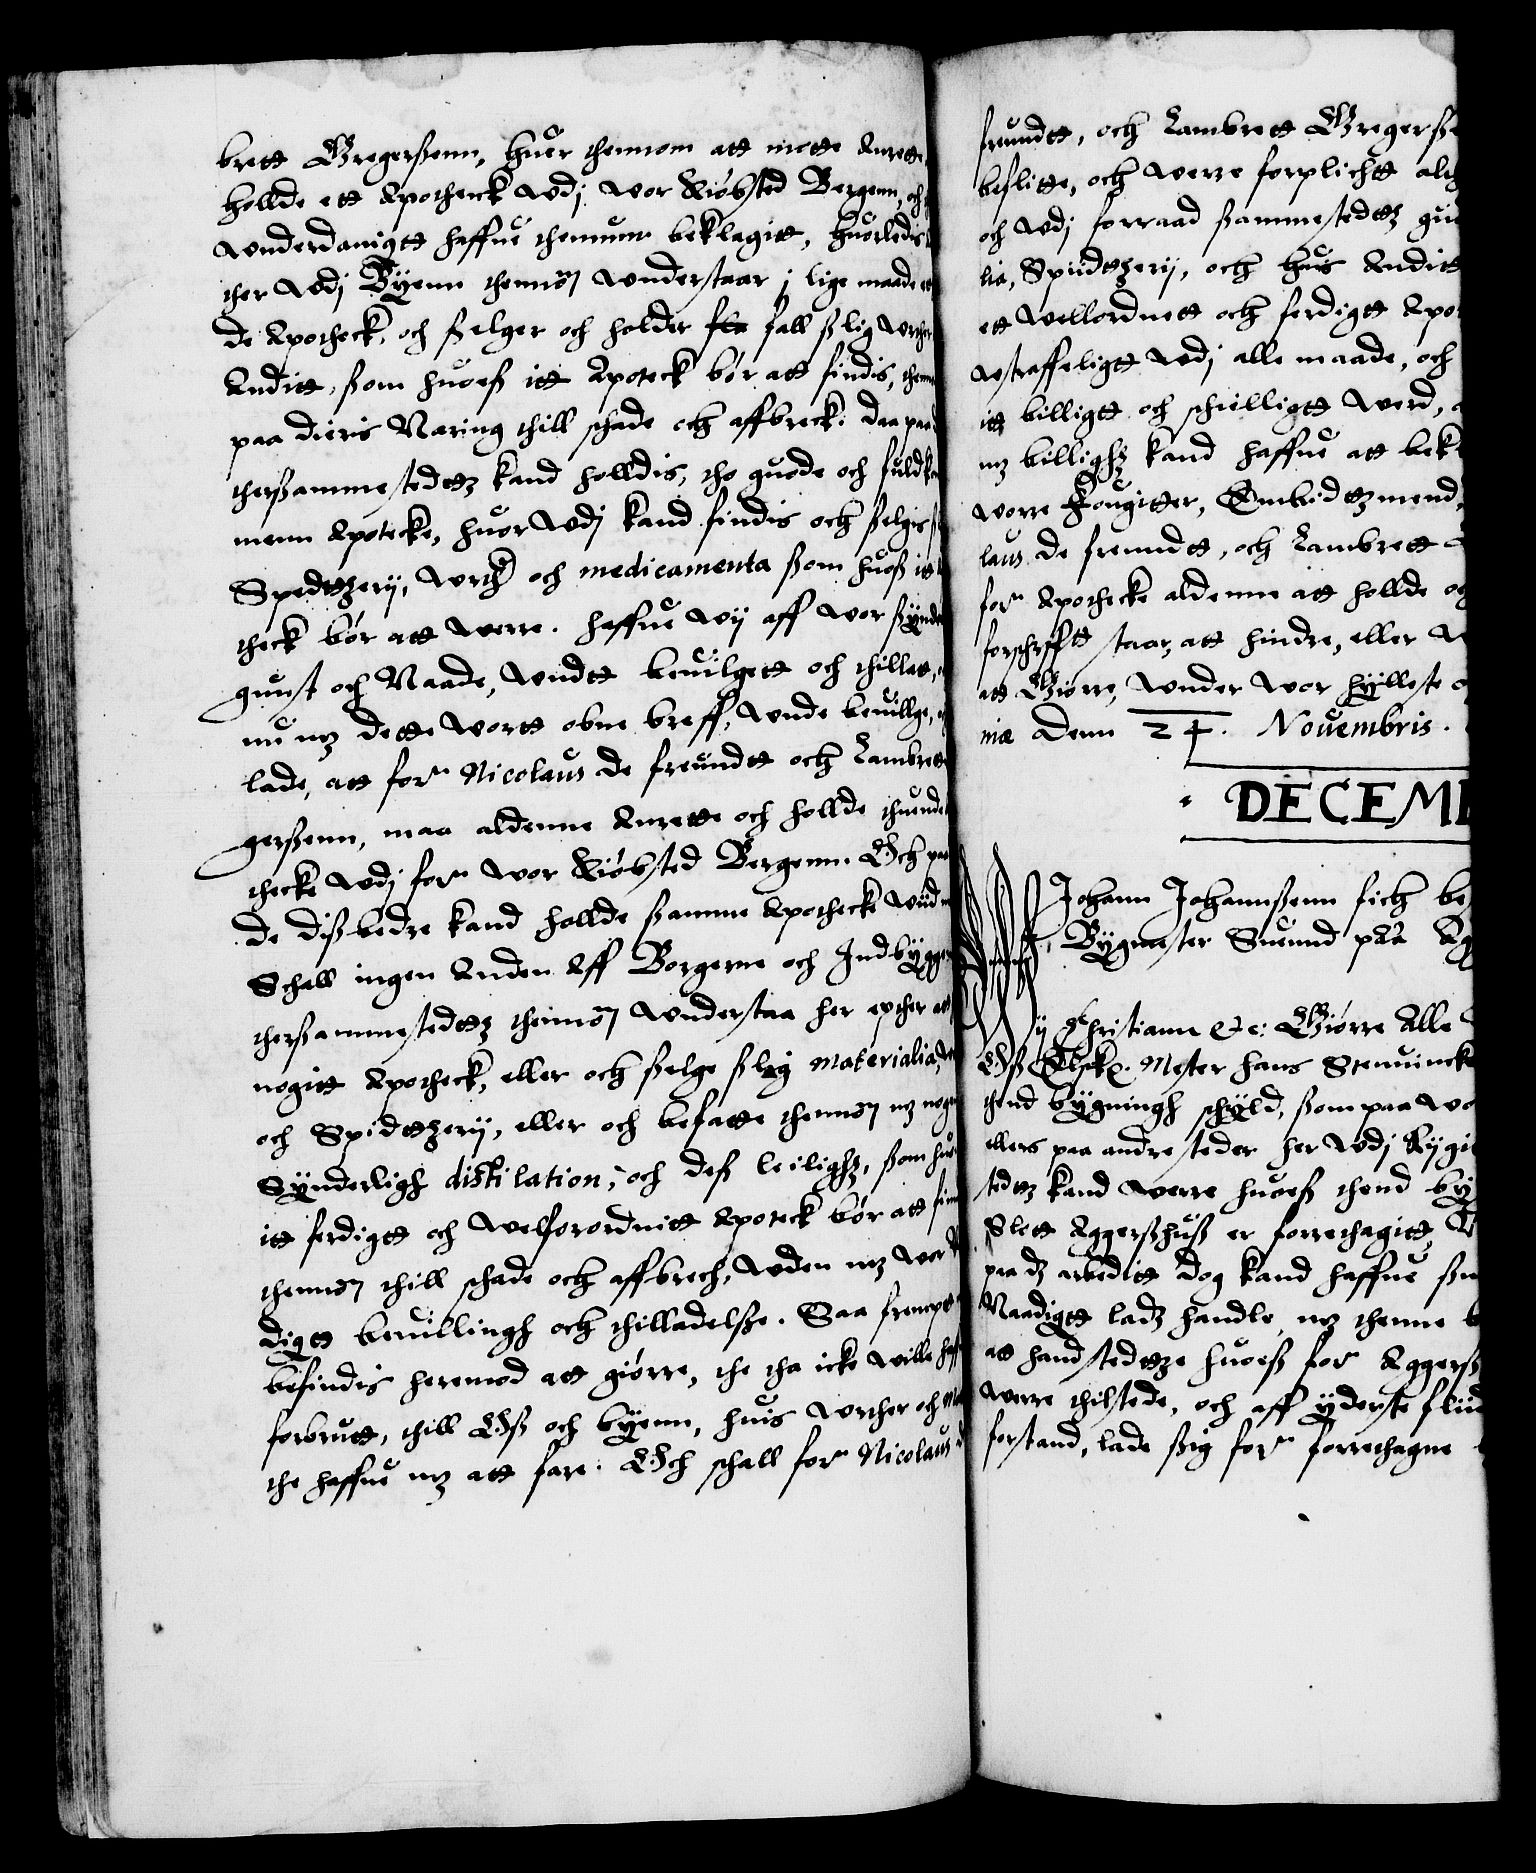 brett Gregerßenn, huer thennom att motte Anrette
hollde ett Apotheck wdj wor Kiöbsted Bergenn, och
wnderdanigtt haffue thennum beklagitt, huorledis
ther wdj Byenn thennom wnderstaar i lige maade
de Apotheck, och sselger och holder fall sslig wrther
Anditt, ssom huoeß itt Apoteck bör att findis,
paa dieris Naring thill schade och affbreck. daa paa
therßammestedttz kand holldis, tho guode och fuldk
menn Apotecke, huor wdj kand findis och ßelgis
Spedttzerij, wrth och medicamenta ßom huoß itt
theck bör att werre. Haffue wij aff wor ßynder
gunst och Naade, wndtt beuilgett och thillatt,
nu mz dette wortt obne breff, wnde beuillge,
lade, att for: Nicolaus de freundtt och Lambrett
gerßenn, maa aldenne Anrette och hollde thuende
thecke wdj for: wor Kiöbsted Bergenn. Och paa
de dißbedre kand hollde ßamme Apothecke wiid
Schall ingen Anden Aff Borgerne och Indbygger
therßammestedttz thennom wnderstaa her epther att
nogitt Apotheck, eller och ßelge ßlig materialia,
och Spidttzerij, eller och befatte thennom mz nogen
Synderligh distilation, och deß leilighz, ßom huoß
itt ferdigtt och welforordnitt Apoteck bör att find
thennom thill schade och affbrech, wden mz wor
digtt beuillingh och thilladelße. Saa frempt
befindis heremod att giörre, the tha icke wille haff
forbrutt, thill Oß och byenn, huis wrther och
the haffue mz att fare. Och schall for: Nicolaus
freundtt, och Lambrett Gregerße
beflitte, och werre forplicht altz
och wdj forraad ßammestedttz gu
lia, Spiidttzerij, och huis Anditt
ett wellordnett och ferdigtt Apot
wstraffeligtt wdj alle maade, och
itt billigtt och schielligtt werd,
mz billighz kand haffue att bek
worre Fougitter, Embidttzmend,
laus de freundtt, och Lambrett
for: Apothecke aldenne att hollde og
forschrfftt staar, att hindre, eller
att Giörre, wnder wor hylleste
niæ Denn 24. Nouembris.
DECEMB
Johann Johannßenn fich be
Bygmester Suennd paa Ag
Wij Christiann Etc: Giörre Alle
Oß Elsk: Mester Hans Stenuincke
thend bygningh schyld, ßom paa wo
ellers paa andre steder her wdj Rygit
stedttz kand werre huoeß thend by
Slott Aggerßhuß er forrethagitt,
paa dz arbeditt dog kand haffue ßin
Naadigtt ladz handle, mz thenne
att hand stedttze huoeß for: Aggerß
werre thilstede, och aff yderste fliid
forstand, lade ßig for: forrethagne